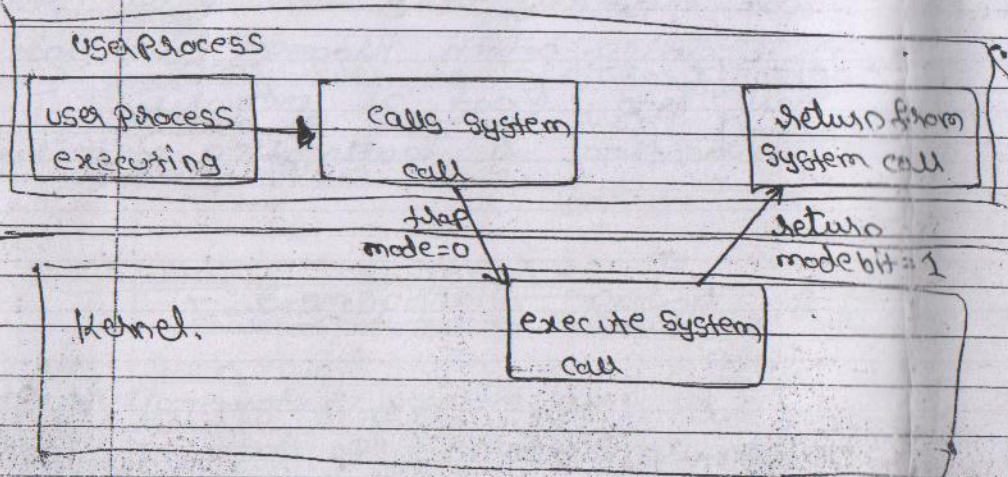 user process
user process
executing
calls system
call
return from
system call
trap
mode=0
return
mode bit = 1
Kernel.
execute system
call